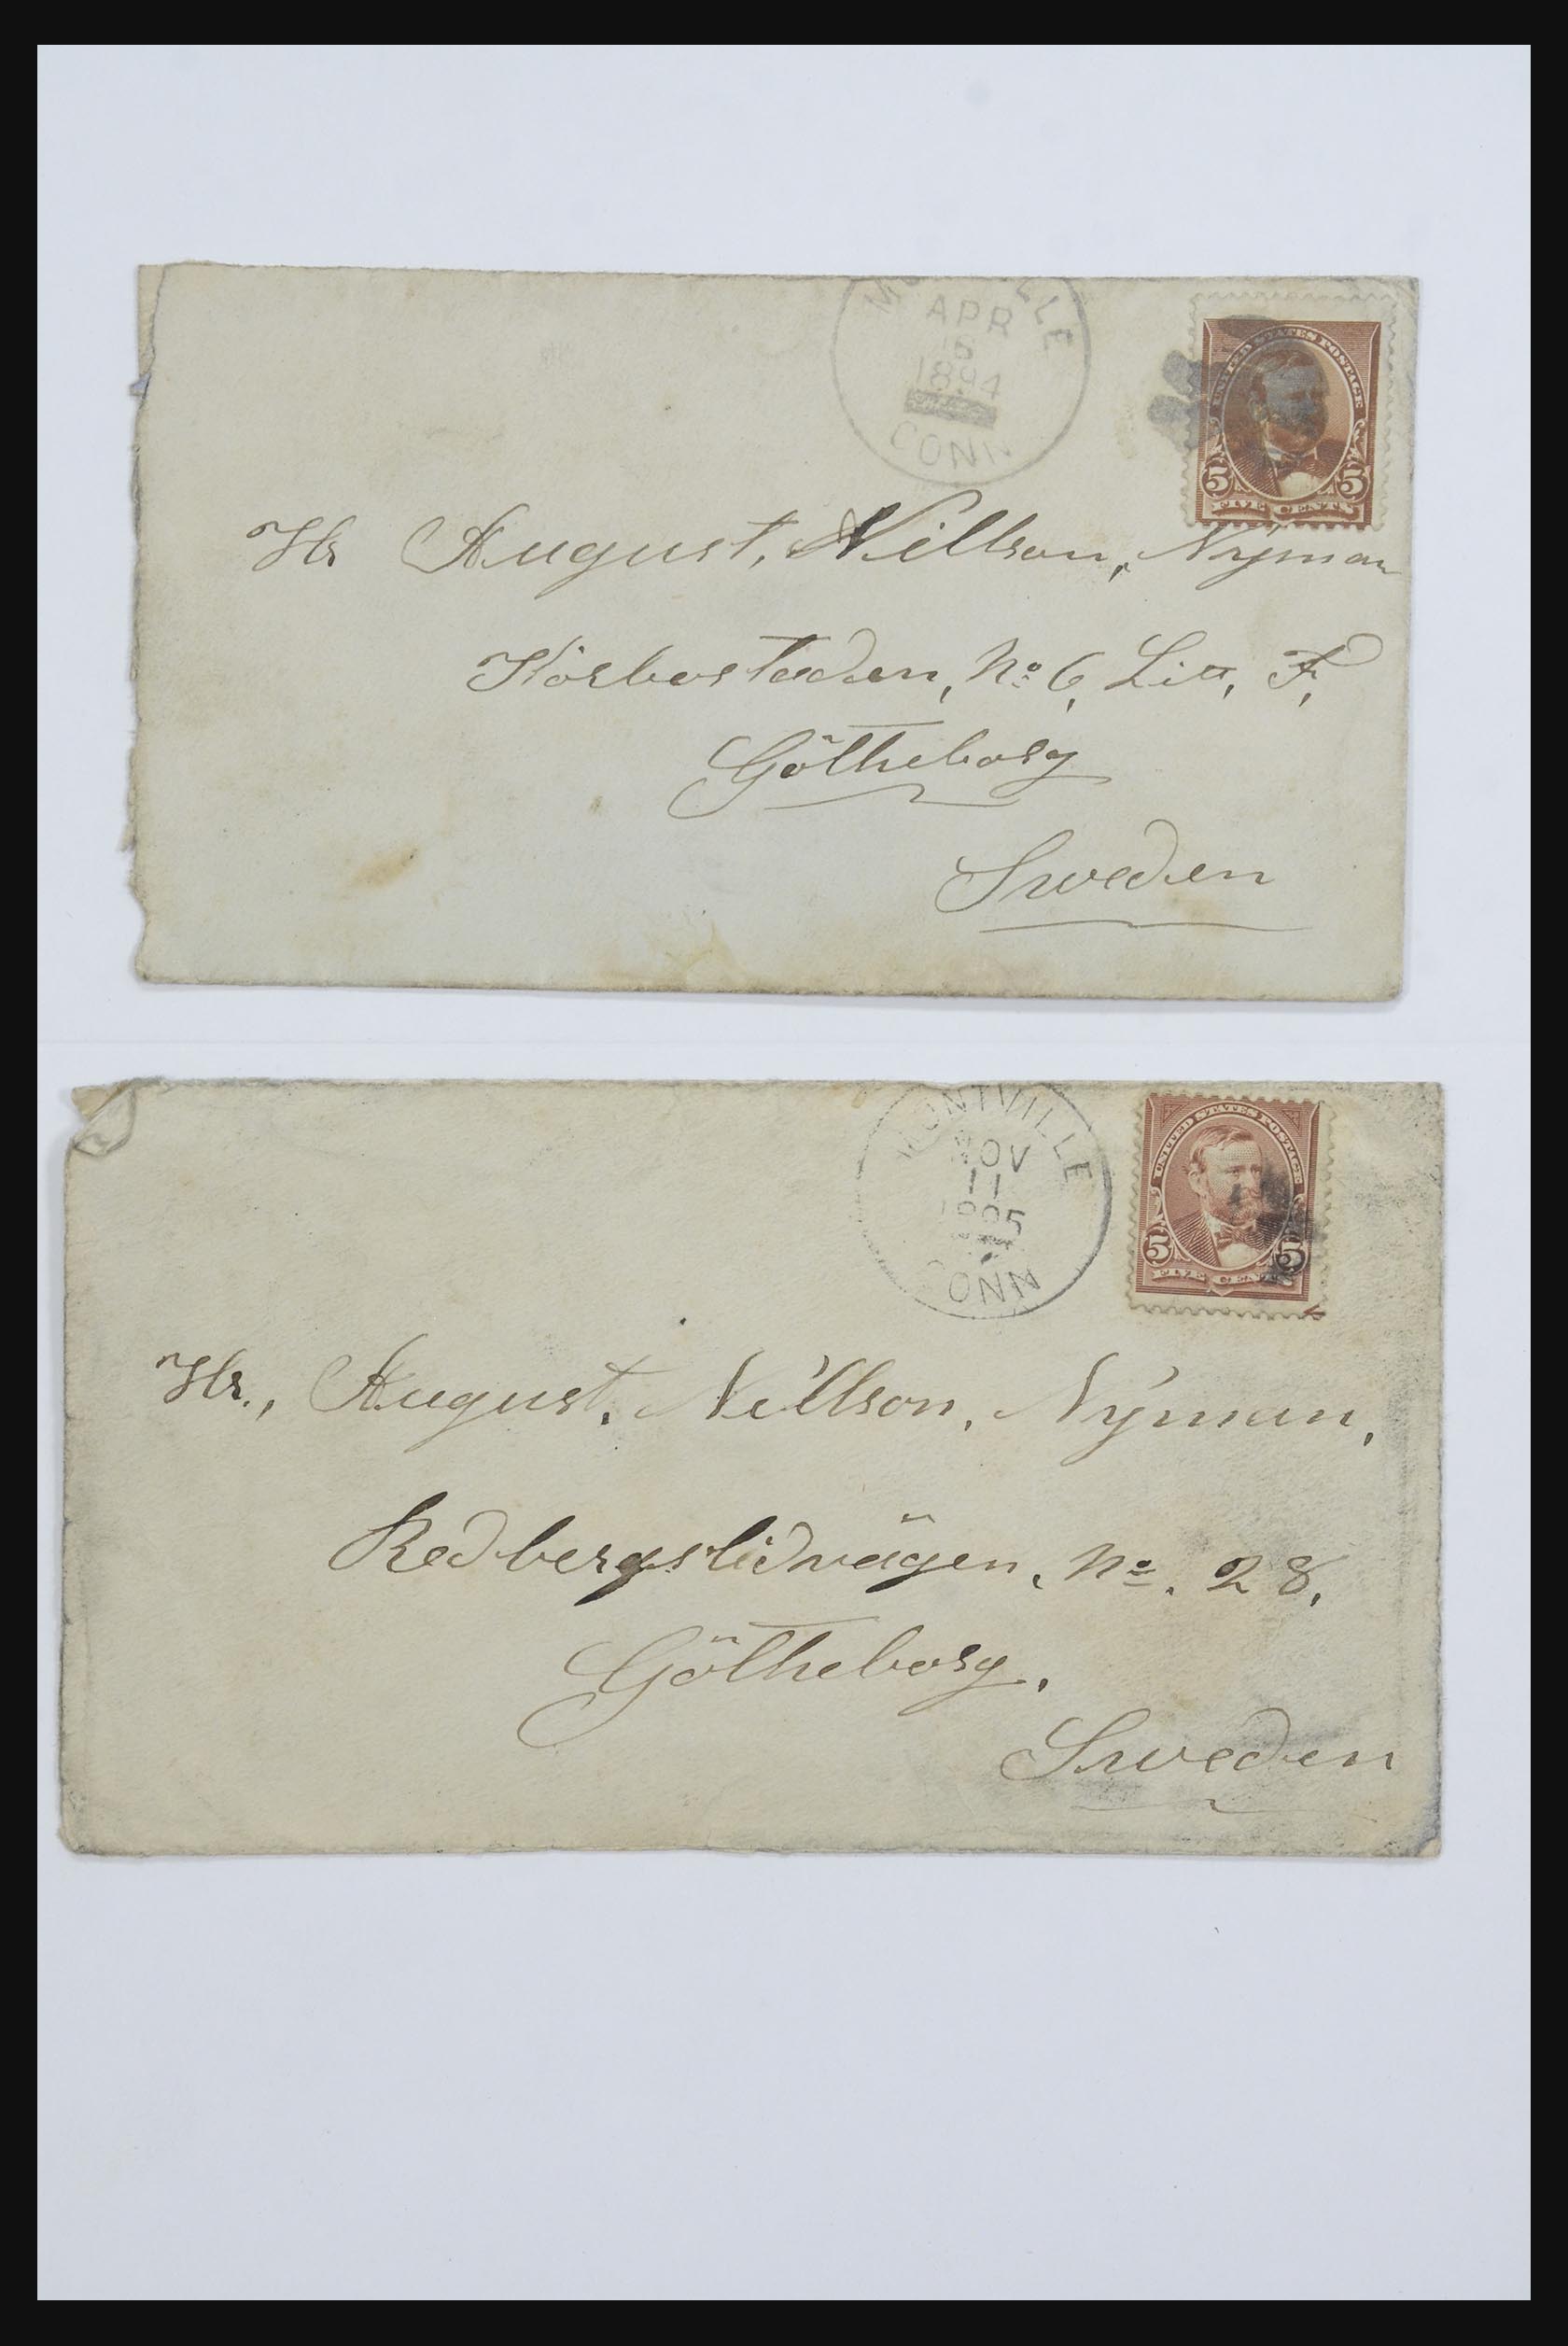 APR
1894
CONN
UNITED STATES POSTAGE
5 5
FIVE CENTS
Hr August, Nillson, Nyman
No 6, Litt, F,
Götheborg
Sweden
MONTVILLE
NOV
11
1895
CONN
UNITED STATES POSTAGE
5 5
FIVE CENTS
Hr., August. Nillson, Nyman,
Redbergslidvägen, No. 28,
Götheborg.
Sweden